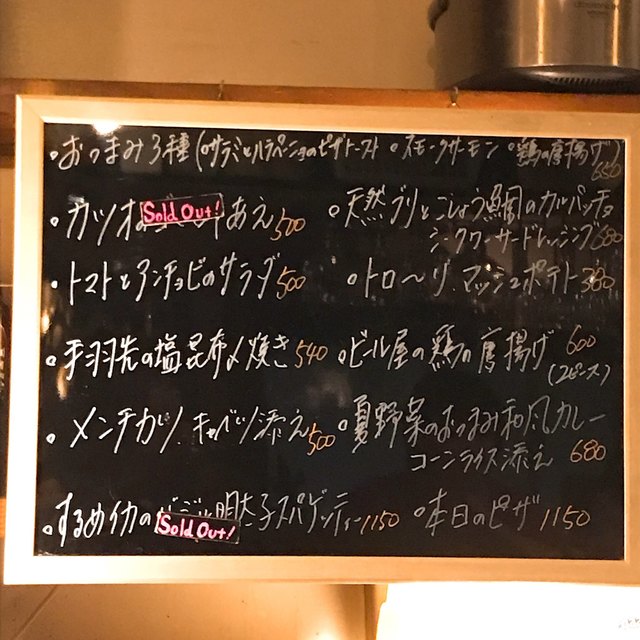 ・おつまみ3種(・サラミとハラペーニョのピザトースト ・スモークサーモン ・鶏の唐揚げ)
650
・カツオ Sold Out! あえ 500
・天然ブリとこしょう鯛のカルパッチョ
シークワーサードレッシング 680
・トマトとアンチョビのサラダ 500
・トロ〜リ マッシュポテト 380
・手羽先の塩昆布〆焼き 540
・ビール屋の鶏の唐揚げ 600
(2ピース)
・メンチカツ、キャベツ添え 500
・夏野菜のおつまみ和風カレー
コーンライス添え 680
・するめイカの Sold Out! 明太子スパゲッティー 1150
・本日のピザ 1150